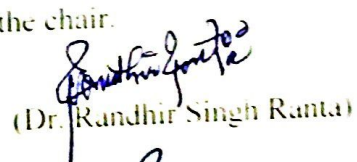 the chair.
(Dr. Randhir Singh Ranta)